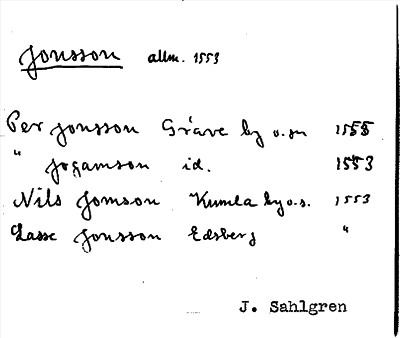 Jonsson allm. 1553
Per Jonsson Gräve by o. sn 1555
" Johanson id. 1553
Nils Jomson Kumla by o. s. 1553
Lasse Jonsson Edsberg "
J. Sahlgren